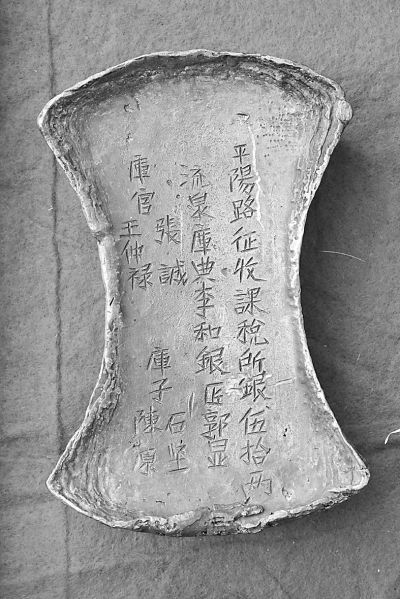 平陽路征收課税所銀伍拾两
流泉庫典李和銀匠郭显
張誠 石坚
庫子陳原
庫官王仲禄